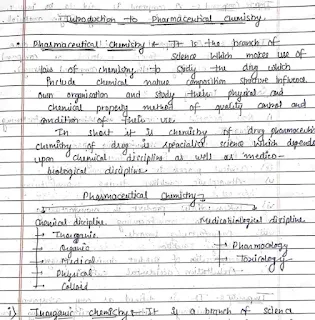 Introduction to Pharmaceutical chemistry
• Pharmaceutical Chemistry :- It is the branch of
science which makes use of
laws of chemistry to study the drug which
include chemical nature composition structure Influence
own organisation and study their physical and
Chemical property method of quality control and
condition of their use.
In short it is chemistry of drug pharmaceutic
chemistry of drug is specialist science which depends
upon Chemical discipline as well as medico-
biological discipline.
Pharmaceutical Chemistry
Chemical discipline
Medicobiological discipline
→ Inorganic
→ Organic
→ Medical
→ Physical
→ Colloid
→ Pharmacology
→ Toxicology
i) Inorganic chemistry :- It is a branch of science